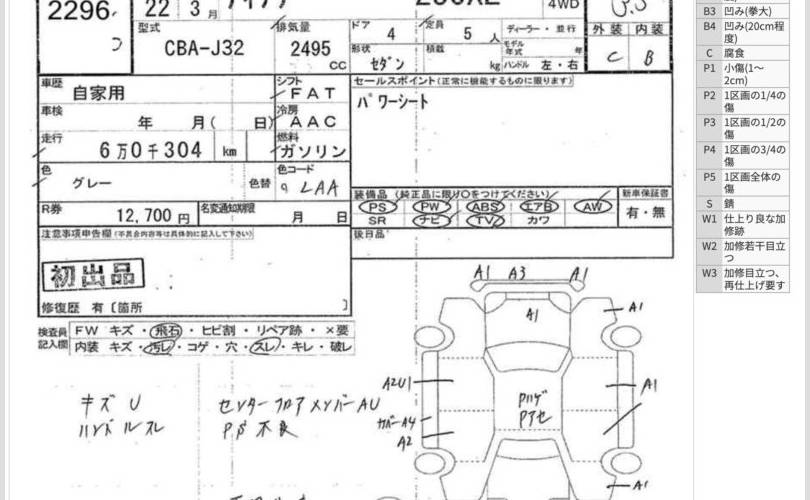 2296
22 3月 4WD
B3 凹み(拳大)
B4 凹み(20cm程度)
C 腐食
P1 小傷(1～2cm)
P2 1区画の1/4の傷
P3 1区画の1/2の傷
P4 1区画の3/4の傷
P5 1区画全体の傷
S 錆
W1 仕上り良な加修跡
W2 加修若干目立つ
W3 加修目立つ、再仕上げ要す
型式 CBA-J32
排気量 2495 CC
ドア 4
定員 5 人
ディーラー・並行
外装 内装
C B
形状 セダン
積載 kg
モデル年式 年
ハンドル 左・右
車歴 自家用
シフト FAT
セールスポイント(正常に機能するものに限ります)
パワーシート
車検 年 月( 日)
冷房 AAC
走行 6万0千304 km
燃料 ガソリン
色 グレー 色替
色コード LAA
装備品 (純正品に限り○をつけてください)
新車保証書
PS PW ABS エアB AW
有・無
SR ナビ TV カワ
R券 12,700 円
名変通知期限 月 日
後日品
注意事項申告欄(不具合内容等は具体的に記入して下さい)
初出品
修復歴 有〔箇所 〕
検査員記入欄
FW キズ・飛石・ヒビ割・リペア跡・×要
内装 キズ・汚レ・コゲ・穴・スレ・キレ・破レ
A1 A3 A1
A1
A1
A2U1
A1
カバーA4
A2
A1
キズ U
ハンドルスレ
センターフロアメンバーAU
PS不良
Pハゲ
Pアセ